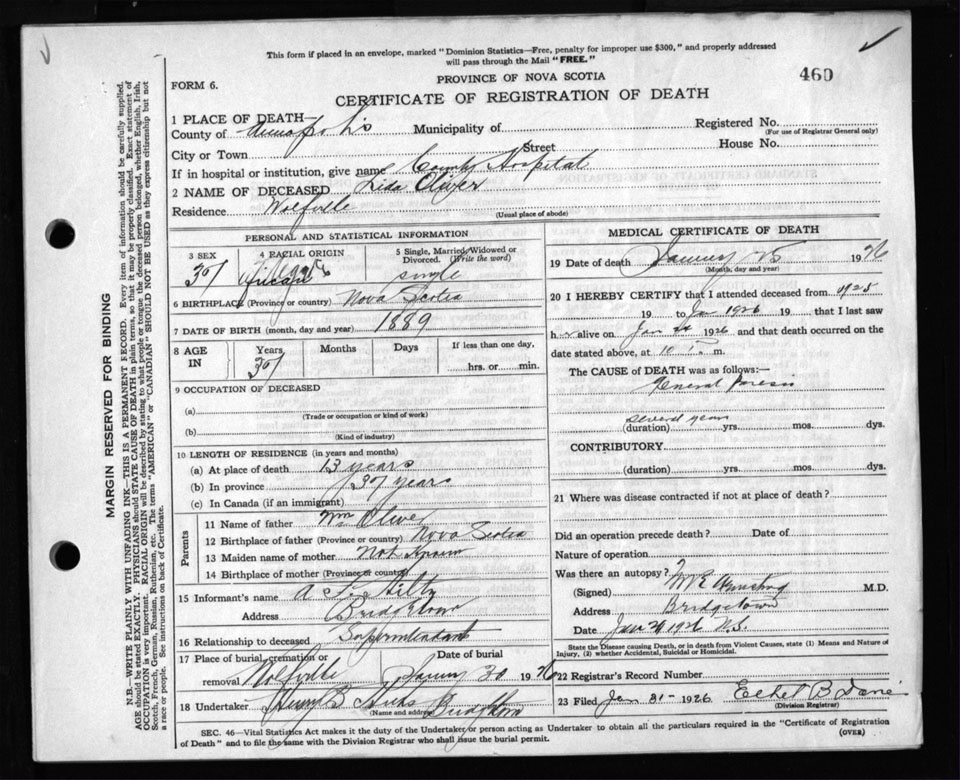 This form if placed in an envelope, marked "Dominion Statistics—Free, penalty for improper use $300," and properly addressed
will pass through the Mail "FREE."
460
FORM 6.
PROVINCE OF NOVA SCOTIA
CERTIFICATE OF REGISTRATION OF DEATH
MARGIN RESERVED FOR BINDING
N.B.—WRITE PLAINLY WITH UNFADING INK—THIS IS A PERMANENT RECORD. Every item of information should be carefully supplied.
AGE should be stated EXACTLY. PHYSICIANS should STATE CAUSE OF DEATH in plain terms, so that it may be properly classified. Exact statement of
OCCUPATION is very important. RACIAL ORIGIN will be described by stating to what people or tongue the deceased person belonged, whether English, Irish,
Scotch, French, German, Russian, Ruthenian, etc. The terms "AMERICAN" or "CANADIAN" SHOULD NOT BE USED as they express citizenship but not
a race or people. See instructions on back of Certificate.
1 PLACE OF DEATH—
County of Municipality of Registered No.
(For use of Registrar General only)
City or Town Street House No.
If in hospital or institution, give name County Hospital
2 NAME OF DECEASED Lida Oliver
Residence Wolfville
(Usual place of abode)
PERSONAL AND STATISTICAL INFORMATION
3 SEX 4 RACIAL ORIGIN 5 Single, Married, Widowed or Divorced. (Write the word)
single
6 BIRTHPLACE (Province or country) Nova Scotia
7 DATE OF BIRTH (month, day and year) 1889
8 AGE IN Years Months Days If less than one day,
37 hrs. or min.
9 OCCUPATION OF DECEASED
(a)
(Trade or occupation or kind of work)
(b)
(Kind of industry)
10 LENGTH OF RESIDENCE (in years and months)
(a) At place of death 13 years
(b) In province 37 years
(c) In Canada (if an immigrant)
Parents
11 Name of father Wm Oliver
12 Birthplace of father (Province or country) Nova Scotia
13 Maiden name of mother Not Known
14 Birthplace of mother (Province or country)
15 Informant's name
Address Bridgetown
16 Relationship to deceased Superintendant
17 Place of burial, cremation or removal Wolfville Date of burial 30 1926
18 Undertaker Hicks Bridgetown
(Name and address)
MEDICAL CERTIFICATE OF DEATH
19 Date of death January 1926
(Month, day and year)
20 I HEREBY CERTIFY that I attended deceased from 1925
19 to Jan 1926 19 that I last saw
h alive on Jan 1926 and that death occurred on
date stated above, at 10 m.
The CAUSE of DEATH was as follows:—
General Paresis
several years
(duration) yrs. mos. dys.
CONTRIBUTORY
(duration) yrs. mos. dys.
21 Where was disease contracted if not at place of death?
Did an operation precede death? Date of
Nature of operation
Was there an autopsy?
(Signed) M.D.
Address Bridgetown
Date 1926 N.S.
State the Disease causing Death, or in death from Violent causes, state (1) Means and Nature of
Injury, (2) whether Accidental, Suicidal or Homicidal.
22 Registrar's Record Number
23 Filed Jan 31- 1926 Ethel B
(Division Registrar)
SEC. 46—Vital Statistics Act makes it the duty of the Undertaker or person acting as Undertaker to obtain all the particulars required in the "Certificate of Registration
of Death" and to file the same with the Division Registrar who shall issue the burial permit.
(OVER)